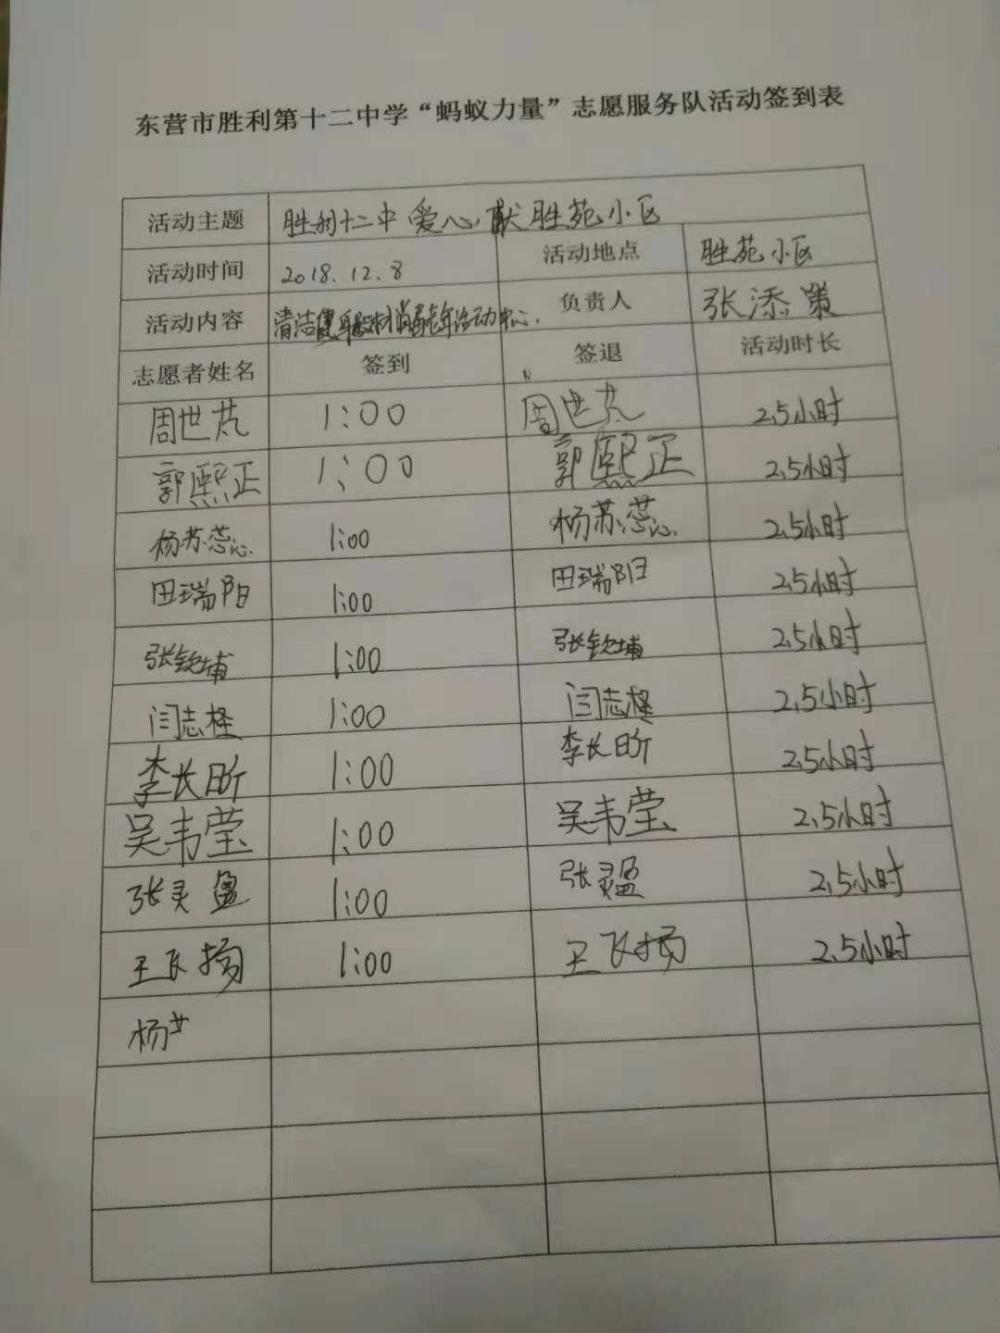 东营市胜利第十二中学“蚂蚁力量”志愿服务队活动签到表
活动主题 胜利十二中爱心献胜苑小区
活动时间 2018.12.8 活动地点 胜苑小区
活动内容 清洁健身器材打扫老年活动中心. 负责人 张添策
志愿者姓名 签到 签退 活动时长
周世芃 1:00 周世芃 2.5小时
郭熙正 1:00 郭熙正 2.5小时
杨苏蕊 1:00 杨苏蕊 2.5小时
田瑞阳 1:00 田瑞阳 2.5小时
张钦埔 1:00 张钦埔 2.5小时
闫志柽 1:00 闫志柽 2.5小时
李长昕 1:00 李长昕 2.5小时
吴韦莹 1:00 吴韦莹 2.5小时
张灵盈 1:00 张灵盈 2.5小时
王飞扬 1:00 王飞扬 2.5小时
杨